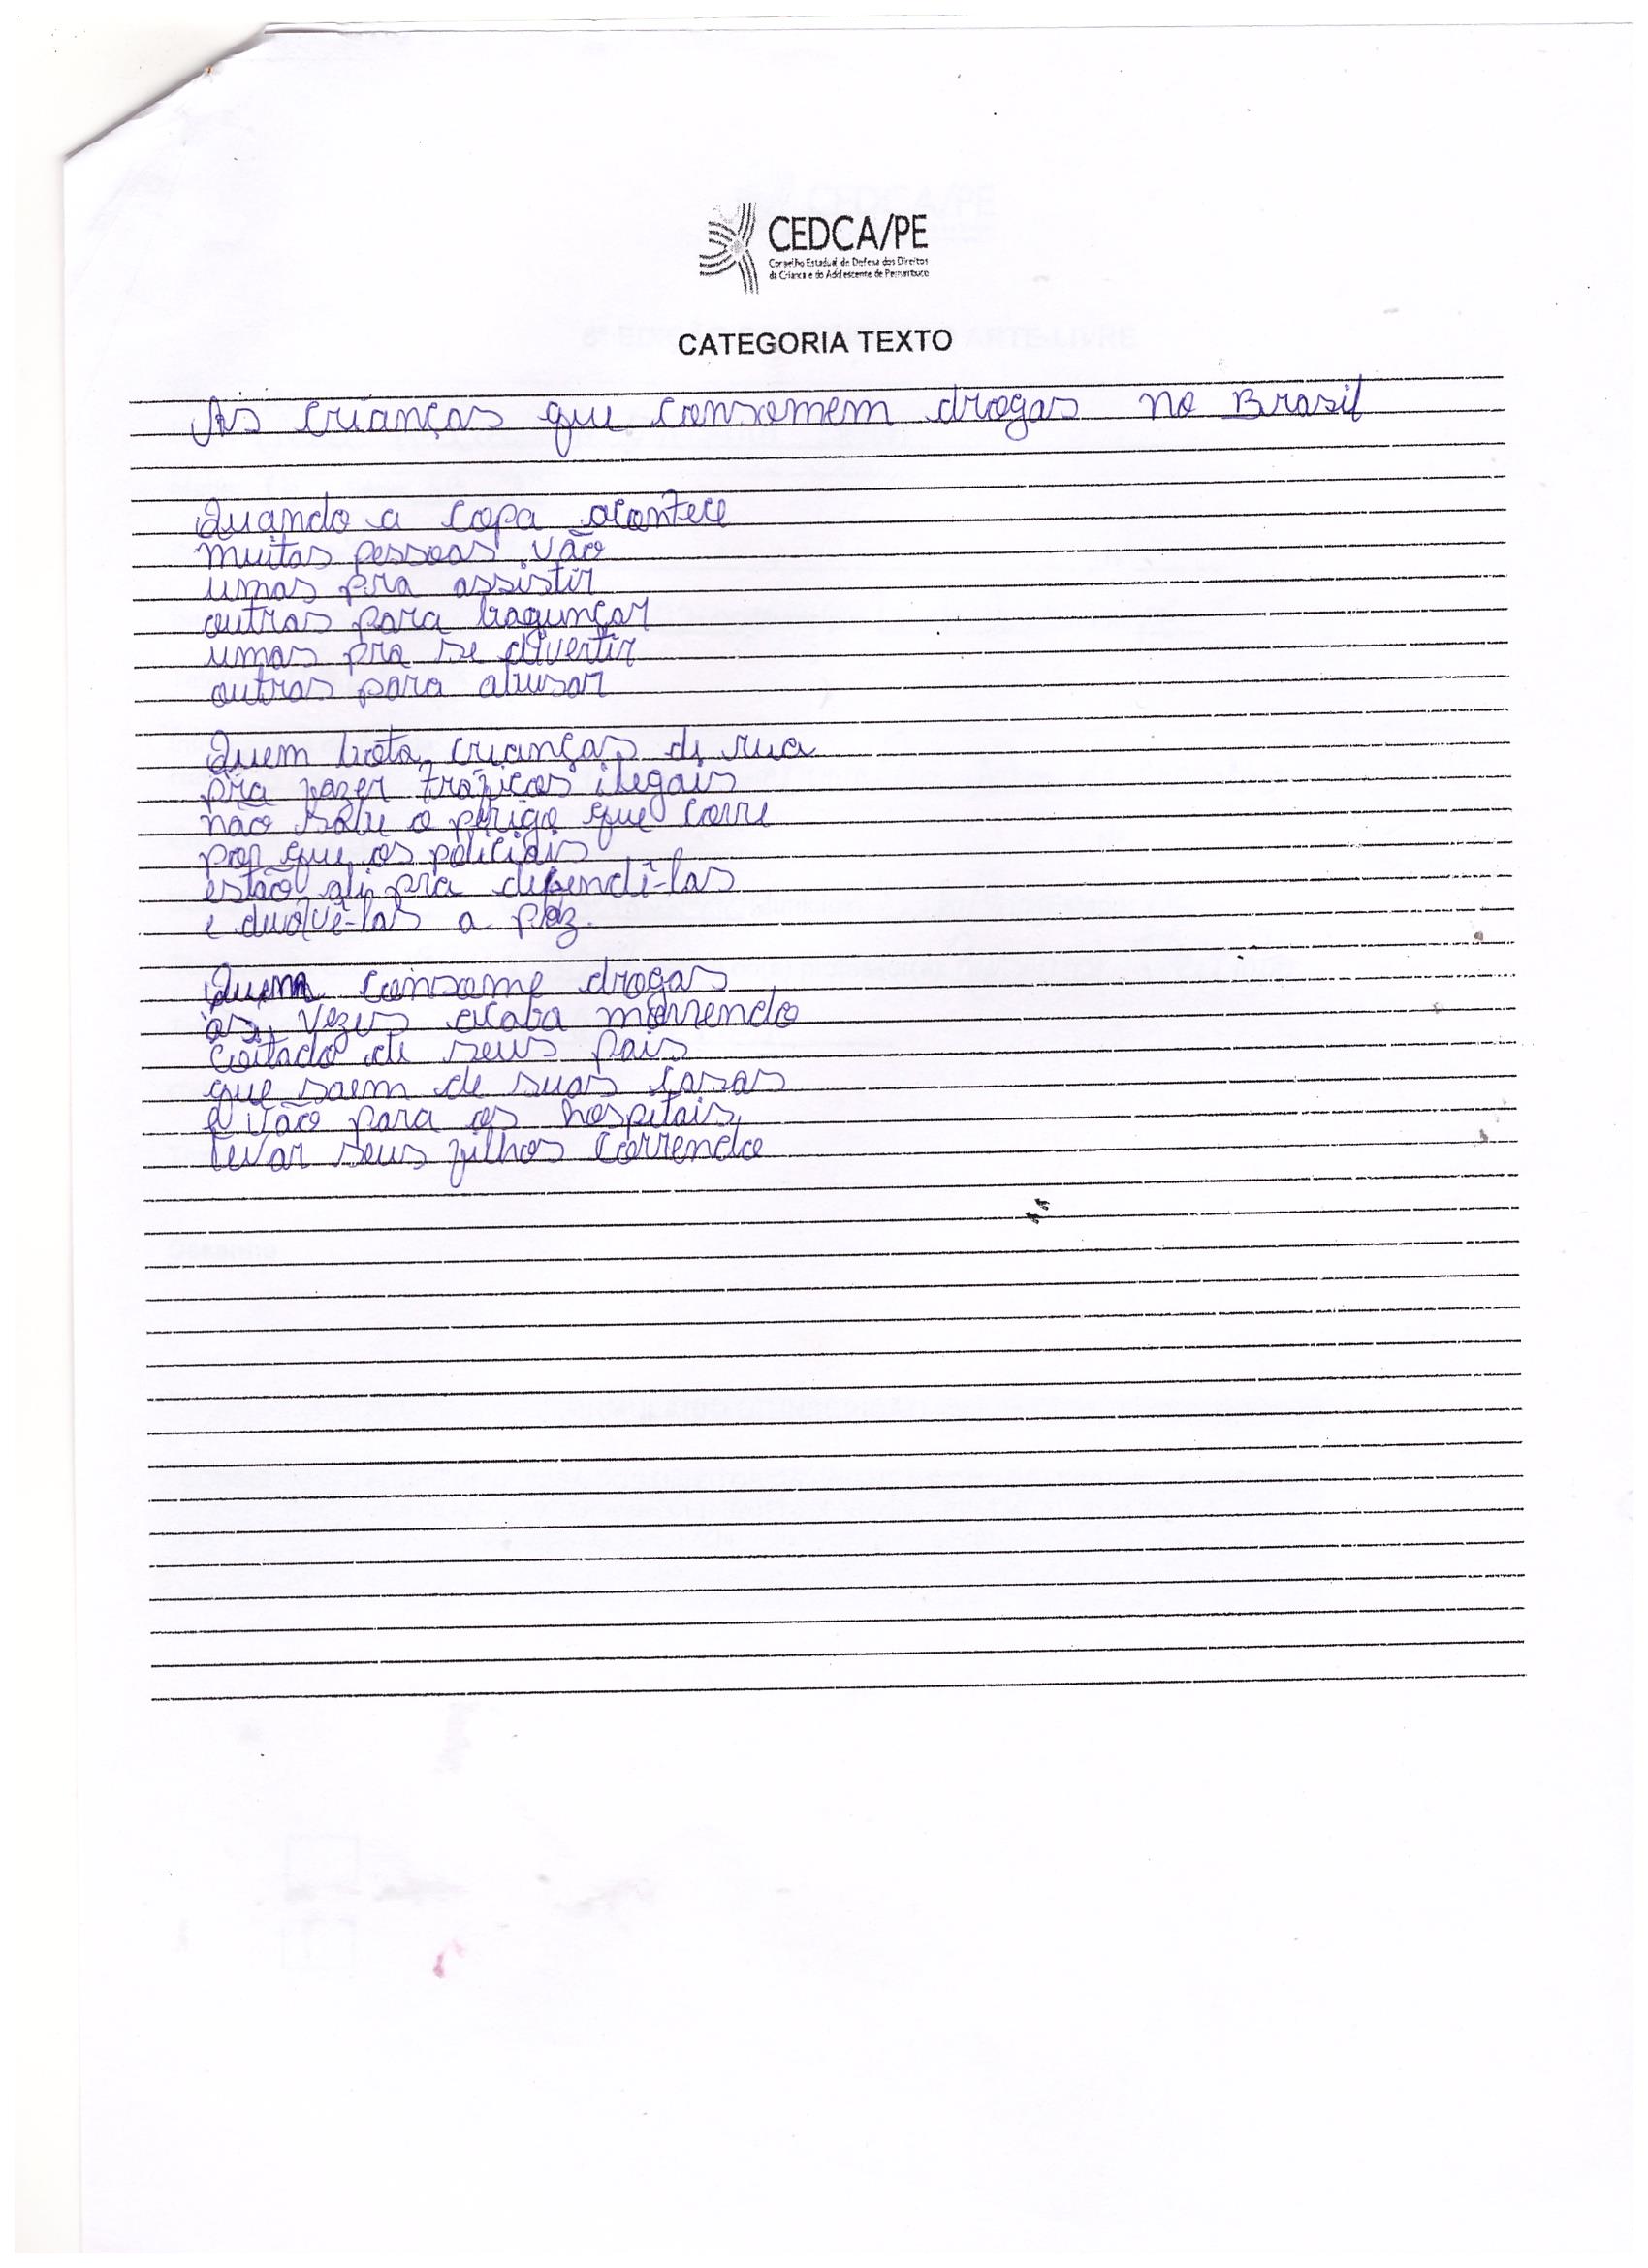 CEDCA/PE
Conselho Estadual de Defesa dos Direitos
da Criança e do Adolescente de Pernambuco
CATEGORIA TEXTO
As crianças que consomem drogas no Brasil
Quando a copa acontece
muitas pessoas vão
umas pra assistir
outras para bagunçar
umas pra se divertir
outras para abusar
Quem bota crianças de rua
pra fazer tráficos ilegais
não sabe o perigo que corre
por que os policiais
estão ali pra defendê-las
e devolvê-las a paz.
Quem consome drogas
as vezes acaba morrendo
coitado de seus pais
que saem de suas casas
e vão para os hospitais,
levar seus filhos correndo